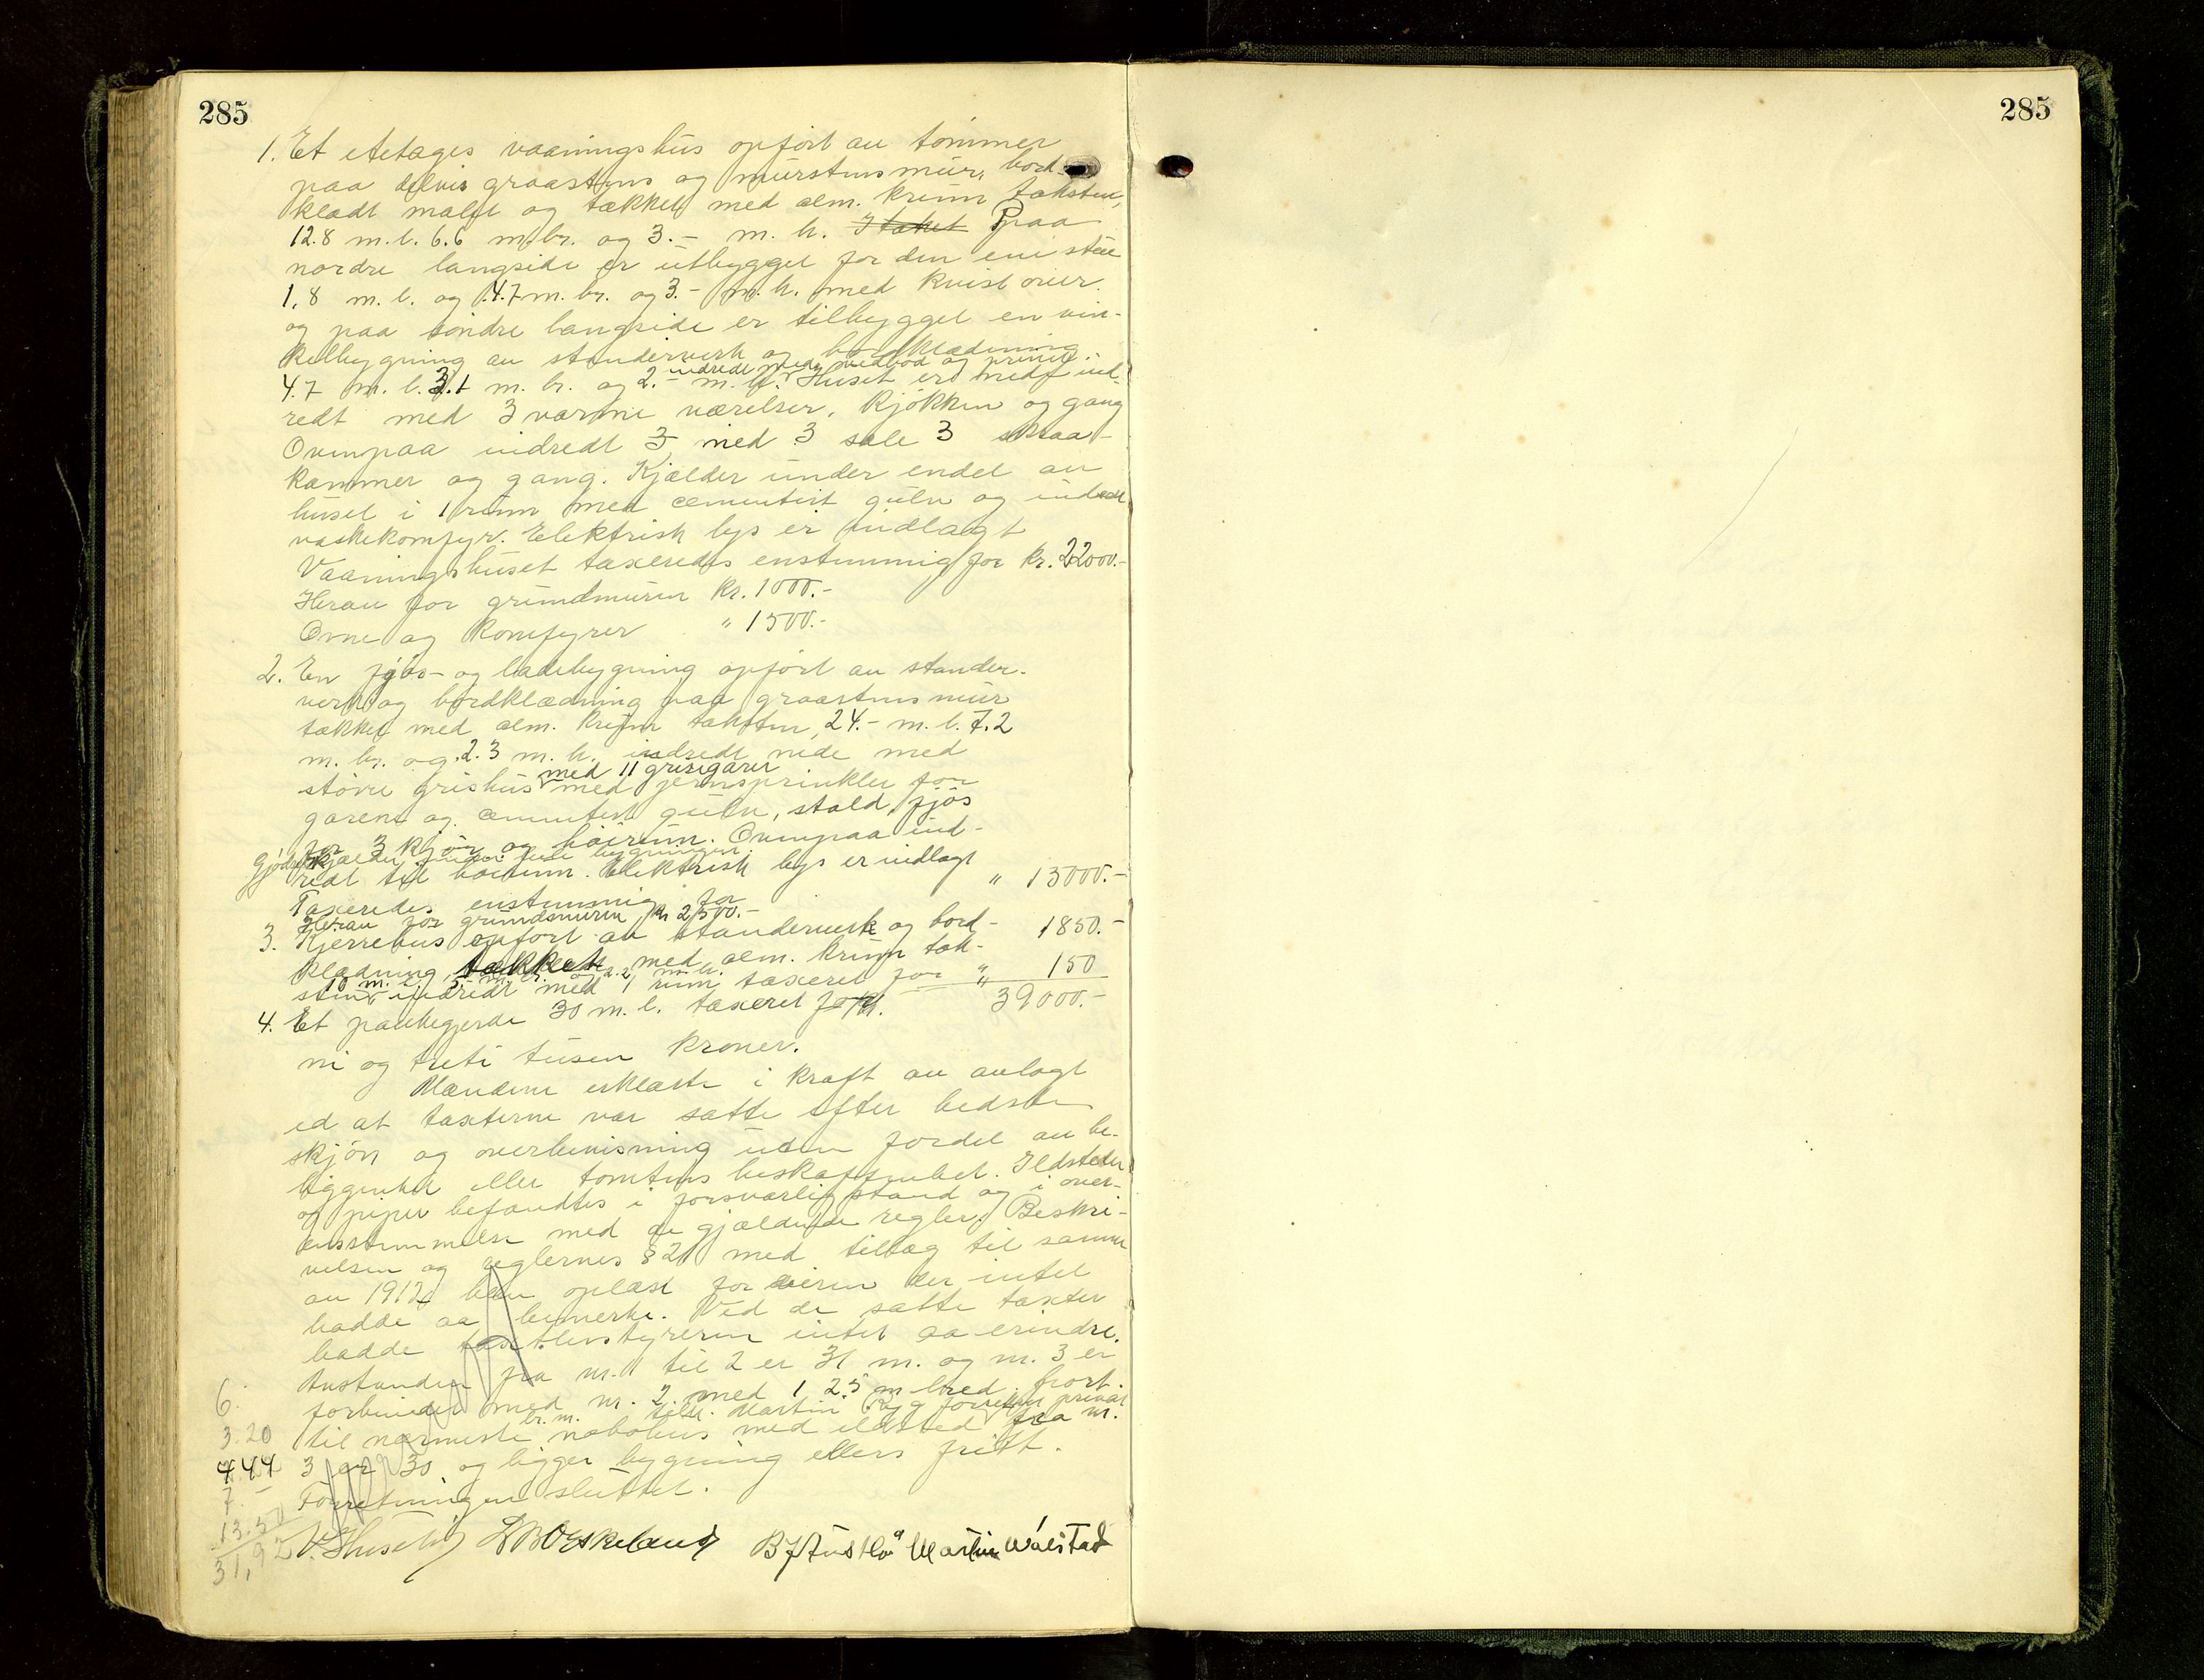 285
1. Et etetages vaaningshus opfört av tömmer
paa delvis graastens og murstensmur, bord-
klædt malt og tækket med alm. krum taksten,
12.8 m.l. 6.6 m.br. og 3.- m.h. I taket Paa
nordre langside er utbygget for den ene stue
1,8 m.l. og 4.7 m.br. og 3.- m.h. med kvist over.
og paa söndre langside er tilbygget en vin-
kelbygning av stenderverk og bordklædning
indredet med vedbod og
4.7 m.l. 3.1 m.br. og 2.- m.h. Huset er nede ind-
redt med 3 varme værelser, kjökken og gang
Ovenpaa indredt 3 med 3 sale 3 skraa-
kammer og gang. Kjælder under endel av
huset i 1 rum med cementert gulv og indsat
vaskekomfyr. Elektrisk lys er indlagt
Vaaningshuset taxeredes enstemmig for kr. 22000.-
Herav for grundmuren kr. 1000.-
Ovne og komfyrer " 1500.-
2. En fjös- og ladebygning opfört av stender-
verk og bordklædning paa graastensmur
tækket med alm. krum taksten, 24.- m.l. 7.2
m.br. og 2.3 m.h. indredt nede med
med 11 grisegarer
större grishus med jernsprinkler for
garene og cementert gulv, stald, fjös
for 3 kjör og höirum. Ovenpaa ind-
Gjödselkjælder under hele bygningen.
redt til höirum. Elektrisk lys er indlagt
Taxeredes enstemmig for " 15000.-
Herav for grundmuren kr 2500.-
3. Kjerrehus opfört av stenderverk og bord- 1850.-
klædning, tækket med alm. krum tak-
10 m.l. 5.- m.br. og 2.2 m.h.
sten, indredt med 1 rum taxeret for "
4. Et pakkegjerde 30 m.l. taxeret for kr. " 150
39000.-
ni og treti tusen kroner.
Mændene erklærte i kraft av avlagt
ed at taxterne var satte efter bedste
skjön og overbevisning uden fordel av be-
liggenhet eller tomtens beskaffenhet. Ildsteder
og piper befandtes i forsvarlig stand og i over-
ensstemmelse med de gjældende regler. Beskri-
velsen og reglernes § 21 med tillæg til samme
av 1912 blev oplæst for eieren der intet
hadde aa bemerke. Ved de satte taxter
hadde taxtbestyreren intet aa erindre.
Avstanden fra nr. 1 til 2 er 31 m. og nr. 3 er
forbundet med nr. 2 med 1 2.5 m bred port.
br. m. Martin privat
til nærmeste nabohus med ildsted fra nr.
3 er 30 og ligger bygning ellers fritt.
Forretningen sluttet.
6.
3.20
4.44
7.-
13.50
31,92
Martin
285